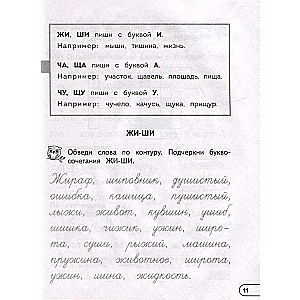 ЖИ, ШИ пиши с буквой И.
Например: мыши, тишина, жизнь.
ЧА, ЩА пиши с буквой А.
Например: участок, щавель, площадь, пища.
ЧУ, ЩУ пиши с буквой У.
Например: чучело, качусь, щука, прищур.
ЖИ-ШИ
Обведи слова по контуру. Подчеркни букво-
сочетания ЖИ-ШИ.
Жираф, шиповник, душистый,
ошибка, кашица, пушистый,
лыжи, живот, кувшин, ушиб,
шишка, чижик, ужин, широ-
та, суши, рыжий, машина,
пружина, животное, широта,
ужин, шина, жидкость.
11